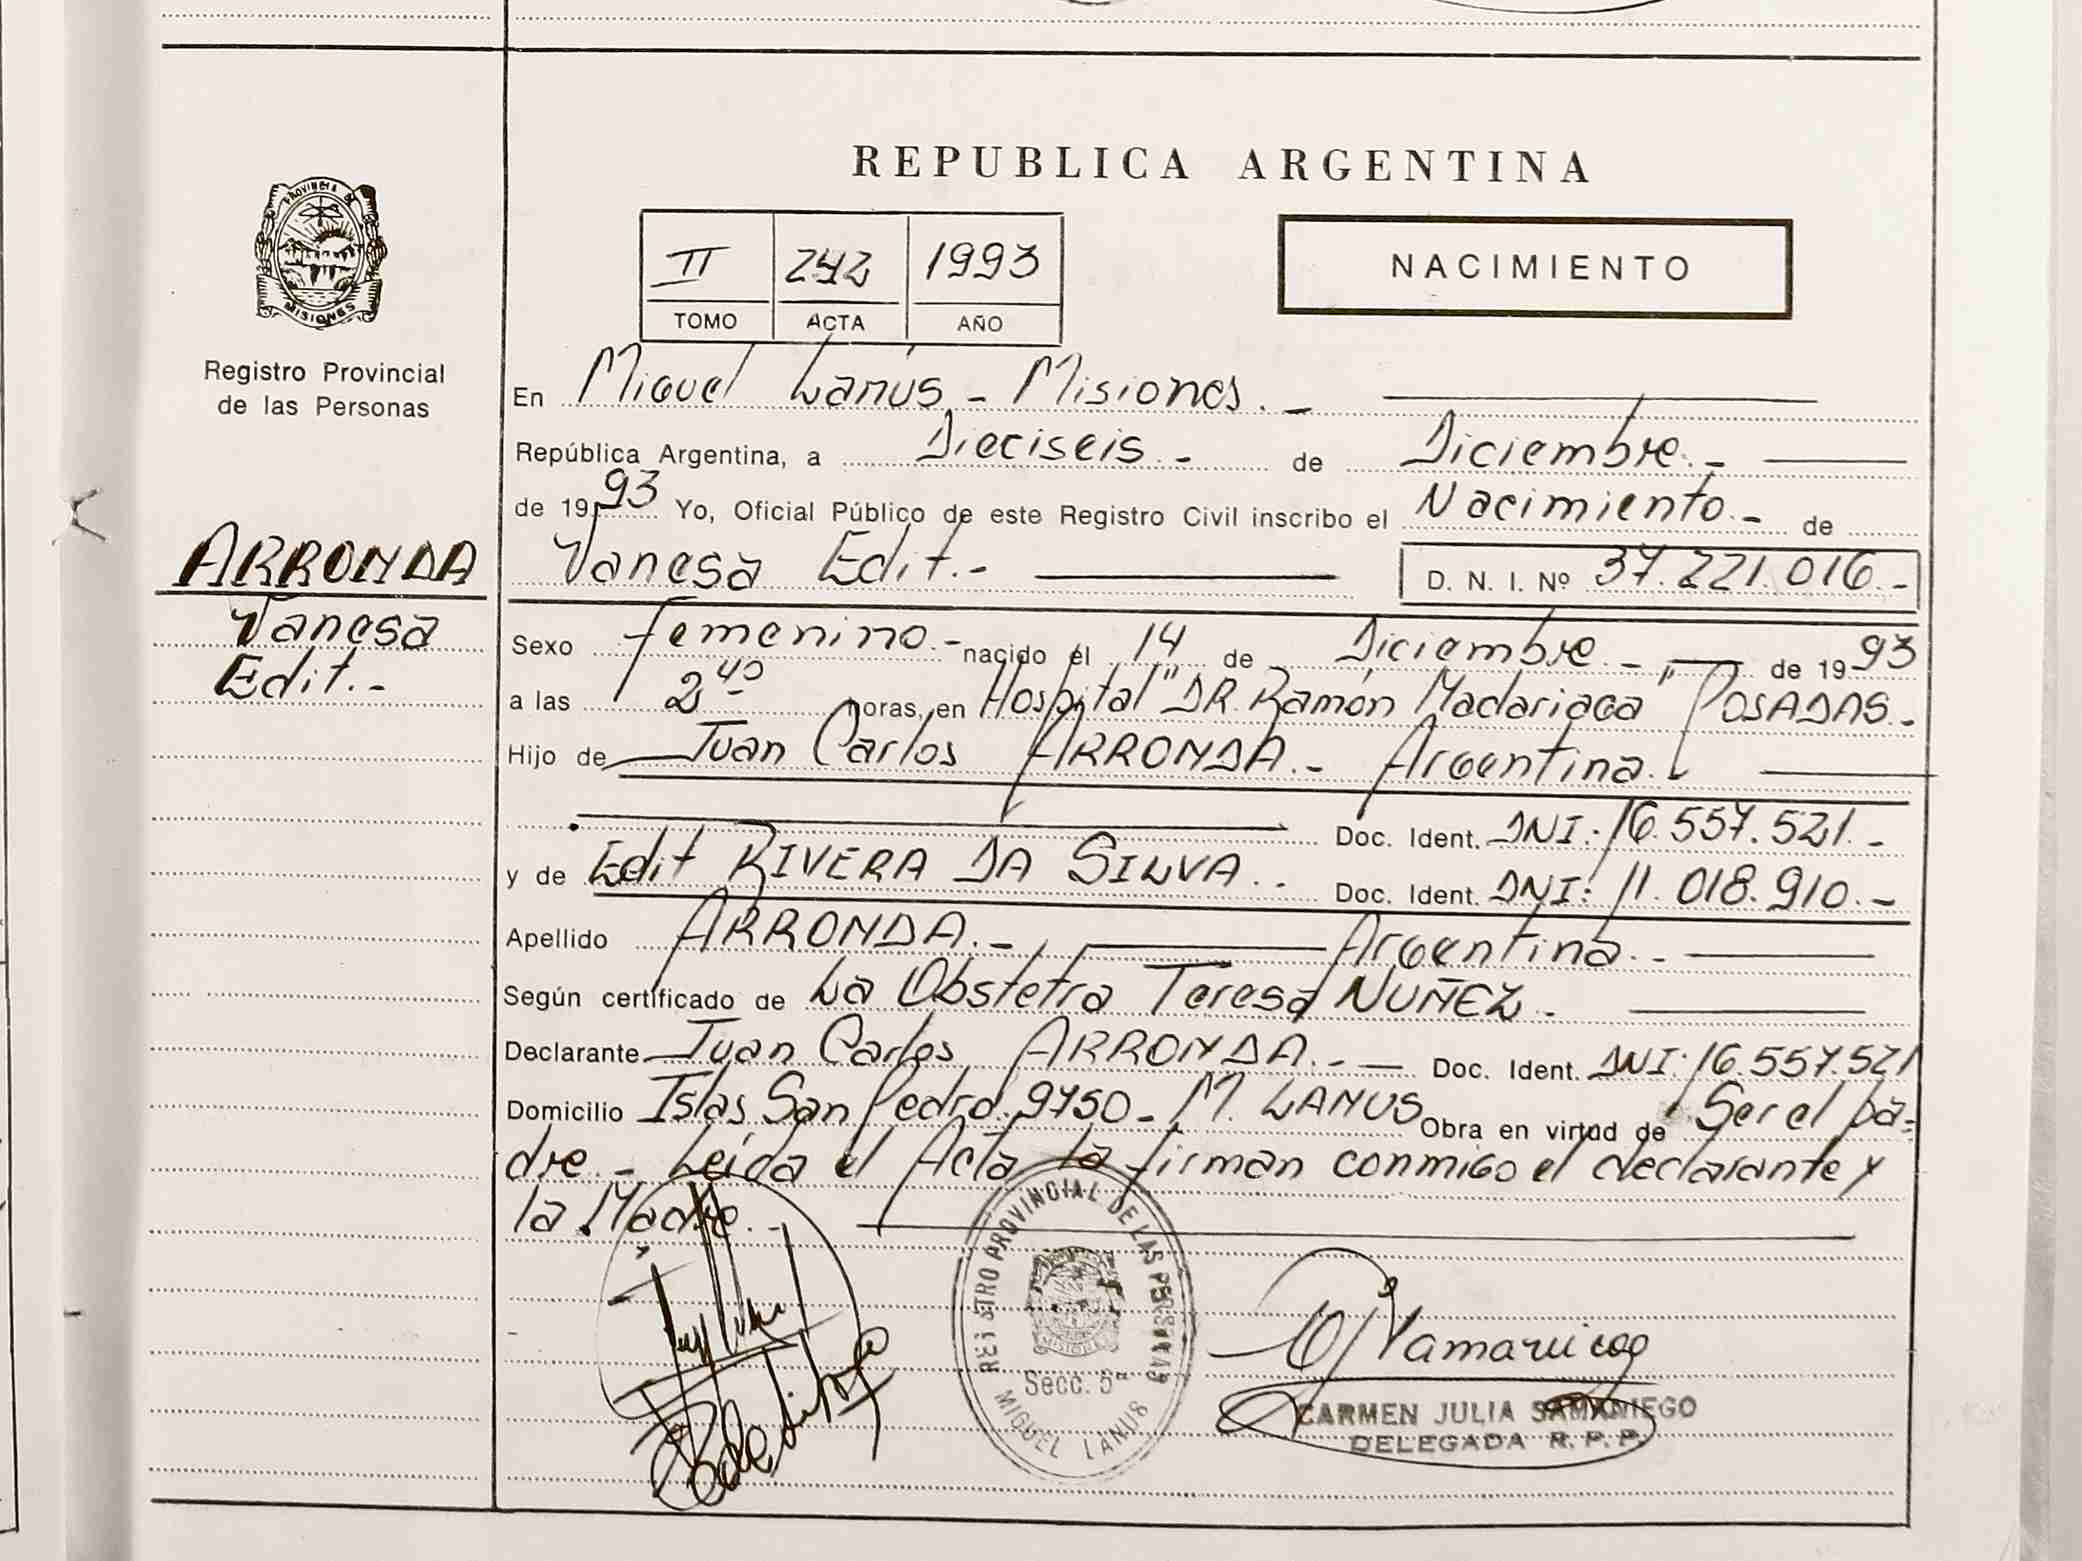 REPUBLICA ARGENTINA
PROVINCIA DE
MISIONES
Registro Provincial
de las Personas
ARRONDA
Vanesa
Edit.-
II 242 1993
TOMO ACTA AÑO
NACIMIENTO
En Miguel Lanús - Misiones. -
República Argentina, a Dieciseis. - de Diciembre. -
de 1993 Yo, Oficial Público de este Registro Civil inscribo el Nacimiento. - de
Vanesa Edit. - D. N. I. Nº 37.221.016. -
Sexo femenino. - nacido el 14 de Diciembre. - de 1993
a las 2 40 horas, en Hospital "DR. Ramón Madariaga" POSADAS. -
Hijo de Juan Carlos ARRONDA. - Argentina.
Doc. Ident. DNI: 16.557.521. -
y de Edit RIVERA DA SILVA. - Doc. Ident. DNI: 11.018.910. -
Apellido ARRONDA. - Argentina. -
Según certificado de La Obstetra Teresa NUÑEZ -
Declarante Juan Carlos ARRONDA. - Doc. Ident. DNI: 16.557.521
Domicilio Islas San Pedro. 9750 - M. LANUS Obra en virtud de Ser el pa=
dre. - Leída el Acta la firman conmigo el declarante y
la Madre. -
REGISTRO PROVINCIAL DE LAS PERSONAS
Secc. 5ª
MIGUEL LANUS
CARMEN JULIA SAMANIEGO
DELEGADA R. P. P.